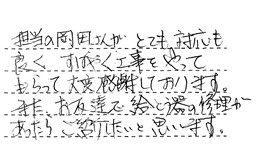 担当の岡田さんがとても対応も
良くすばやく工事をやって
もらって大変感謝しております。
また、お友達で給と湯の修理が
あったらご紹介したいと思います。